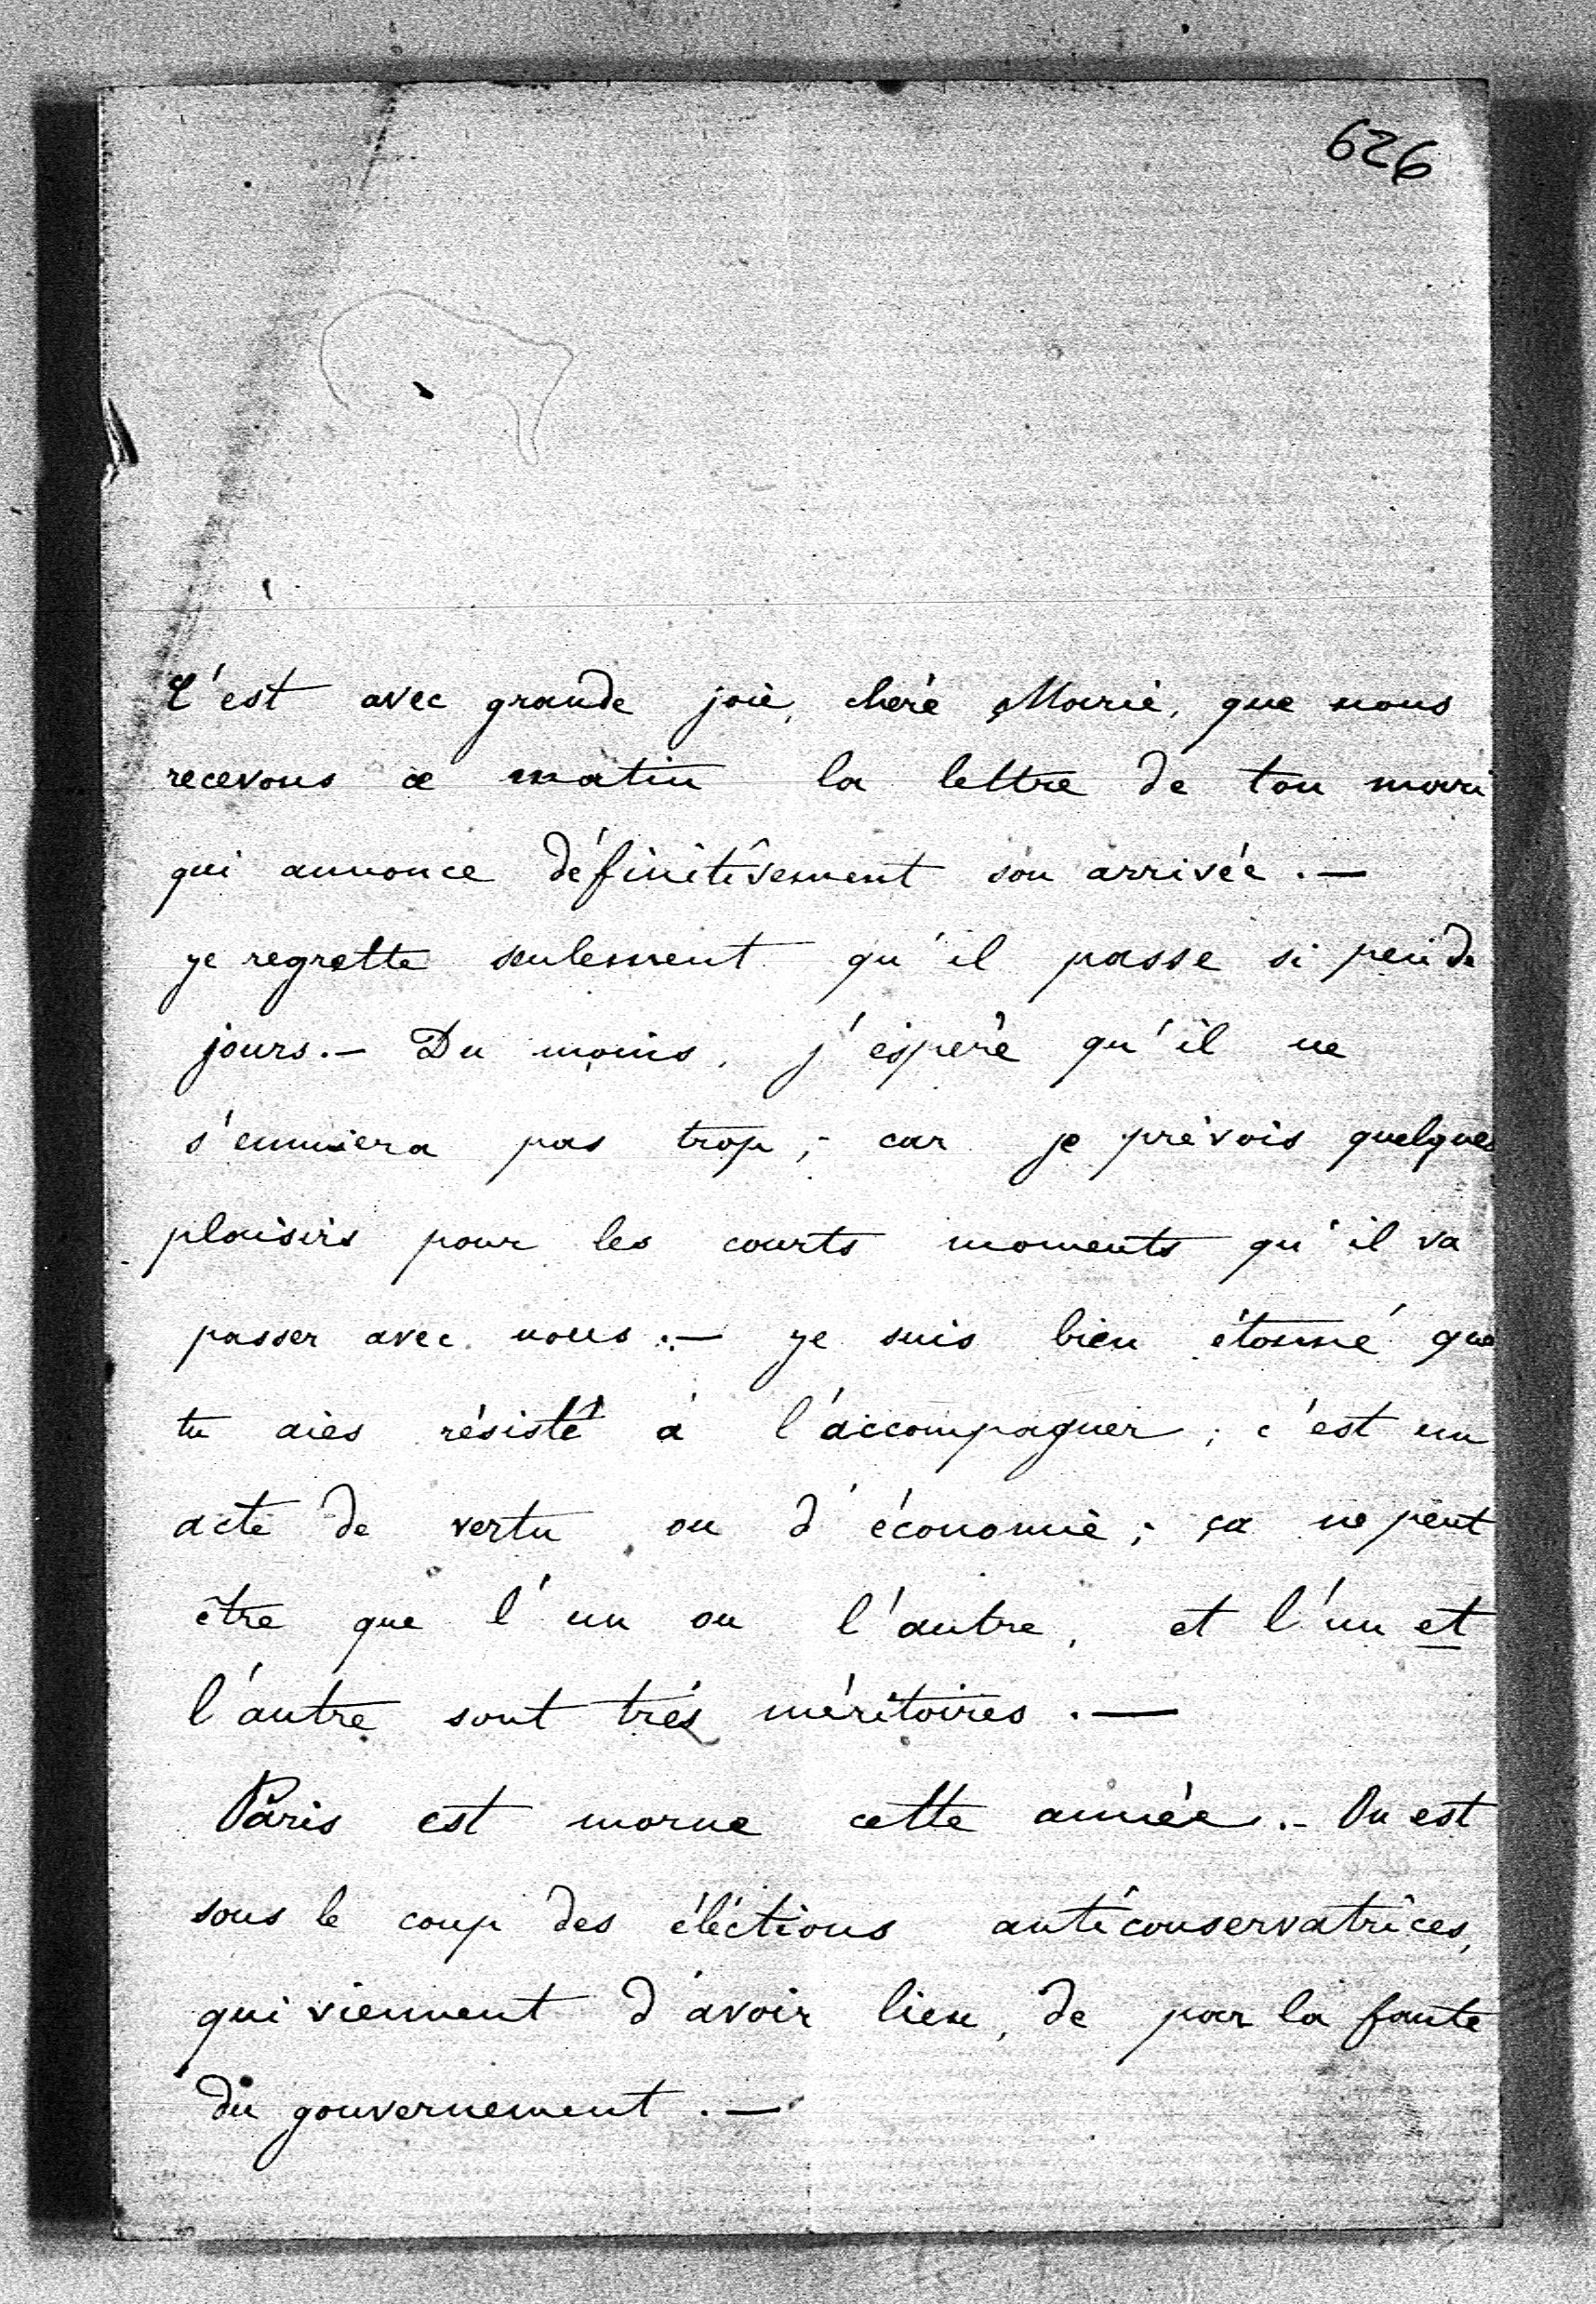 626
C'est avec grande joie, chère Marie, que nous
recevons ce matin la lettre de ton mari
qui annonce définitivement son arrivée. —
je regrette seulement qu'il passe si peu de
jours. — Du moins, j'espère qu'il ne
s'ennuiera pas trop ; car je prévois quelques
plaisirs pour les courts moments qu'il va
passer avec nous. — je suis bien étonné que
tu aies résisté à l'accompagner ; c'est un
acte de vertu ou d'économie ; ça ne peut
être que l'un ou l'autre, et l'un et
l'autre sont très méritoires. —
Paris est morne cette année. — On est
sous le coup des éléctions anticonservatrices,
qui viennent d'avoir lieu, de par la faute
du gouvernement. —